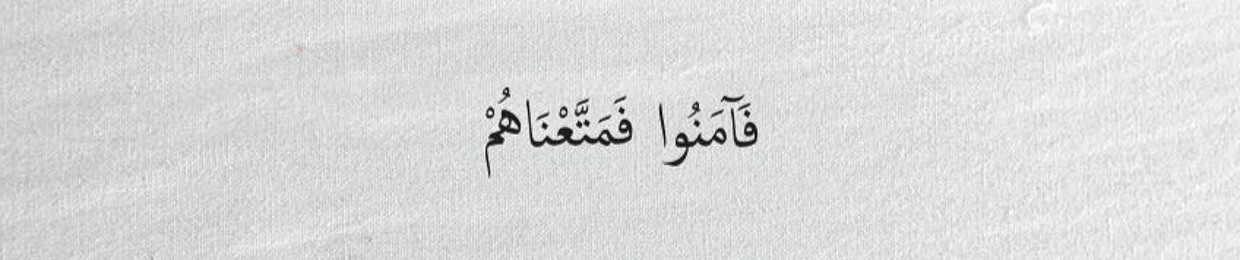 فَآمَنُوا فَمَتَّعْنَاهُمْ